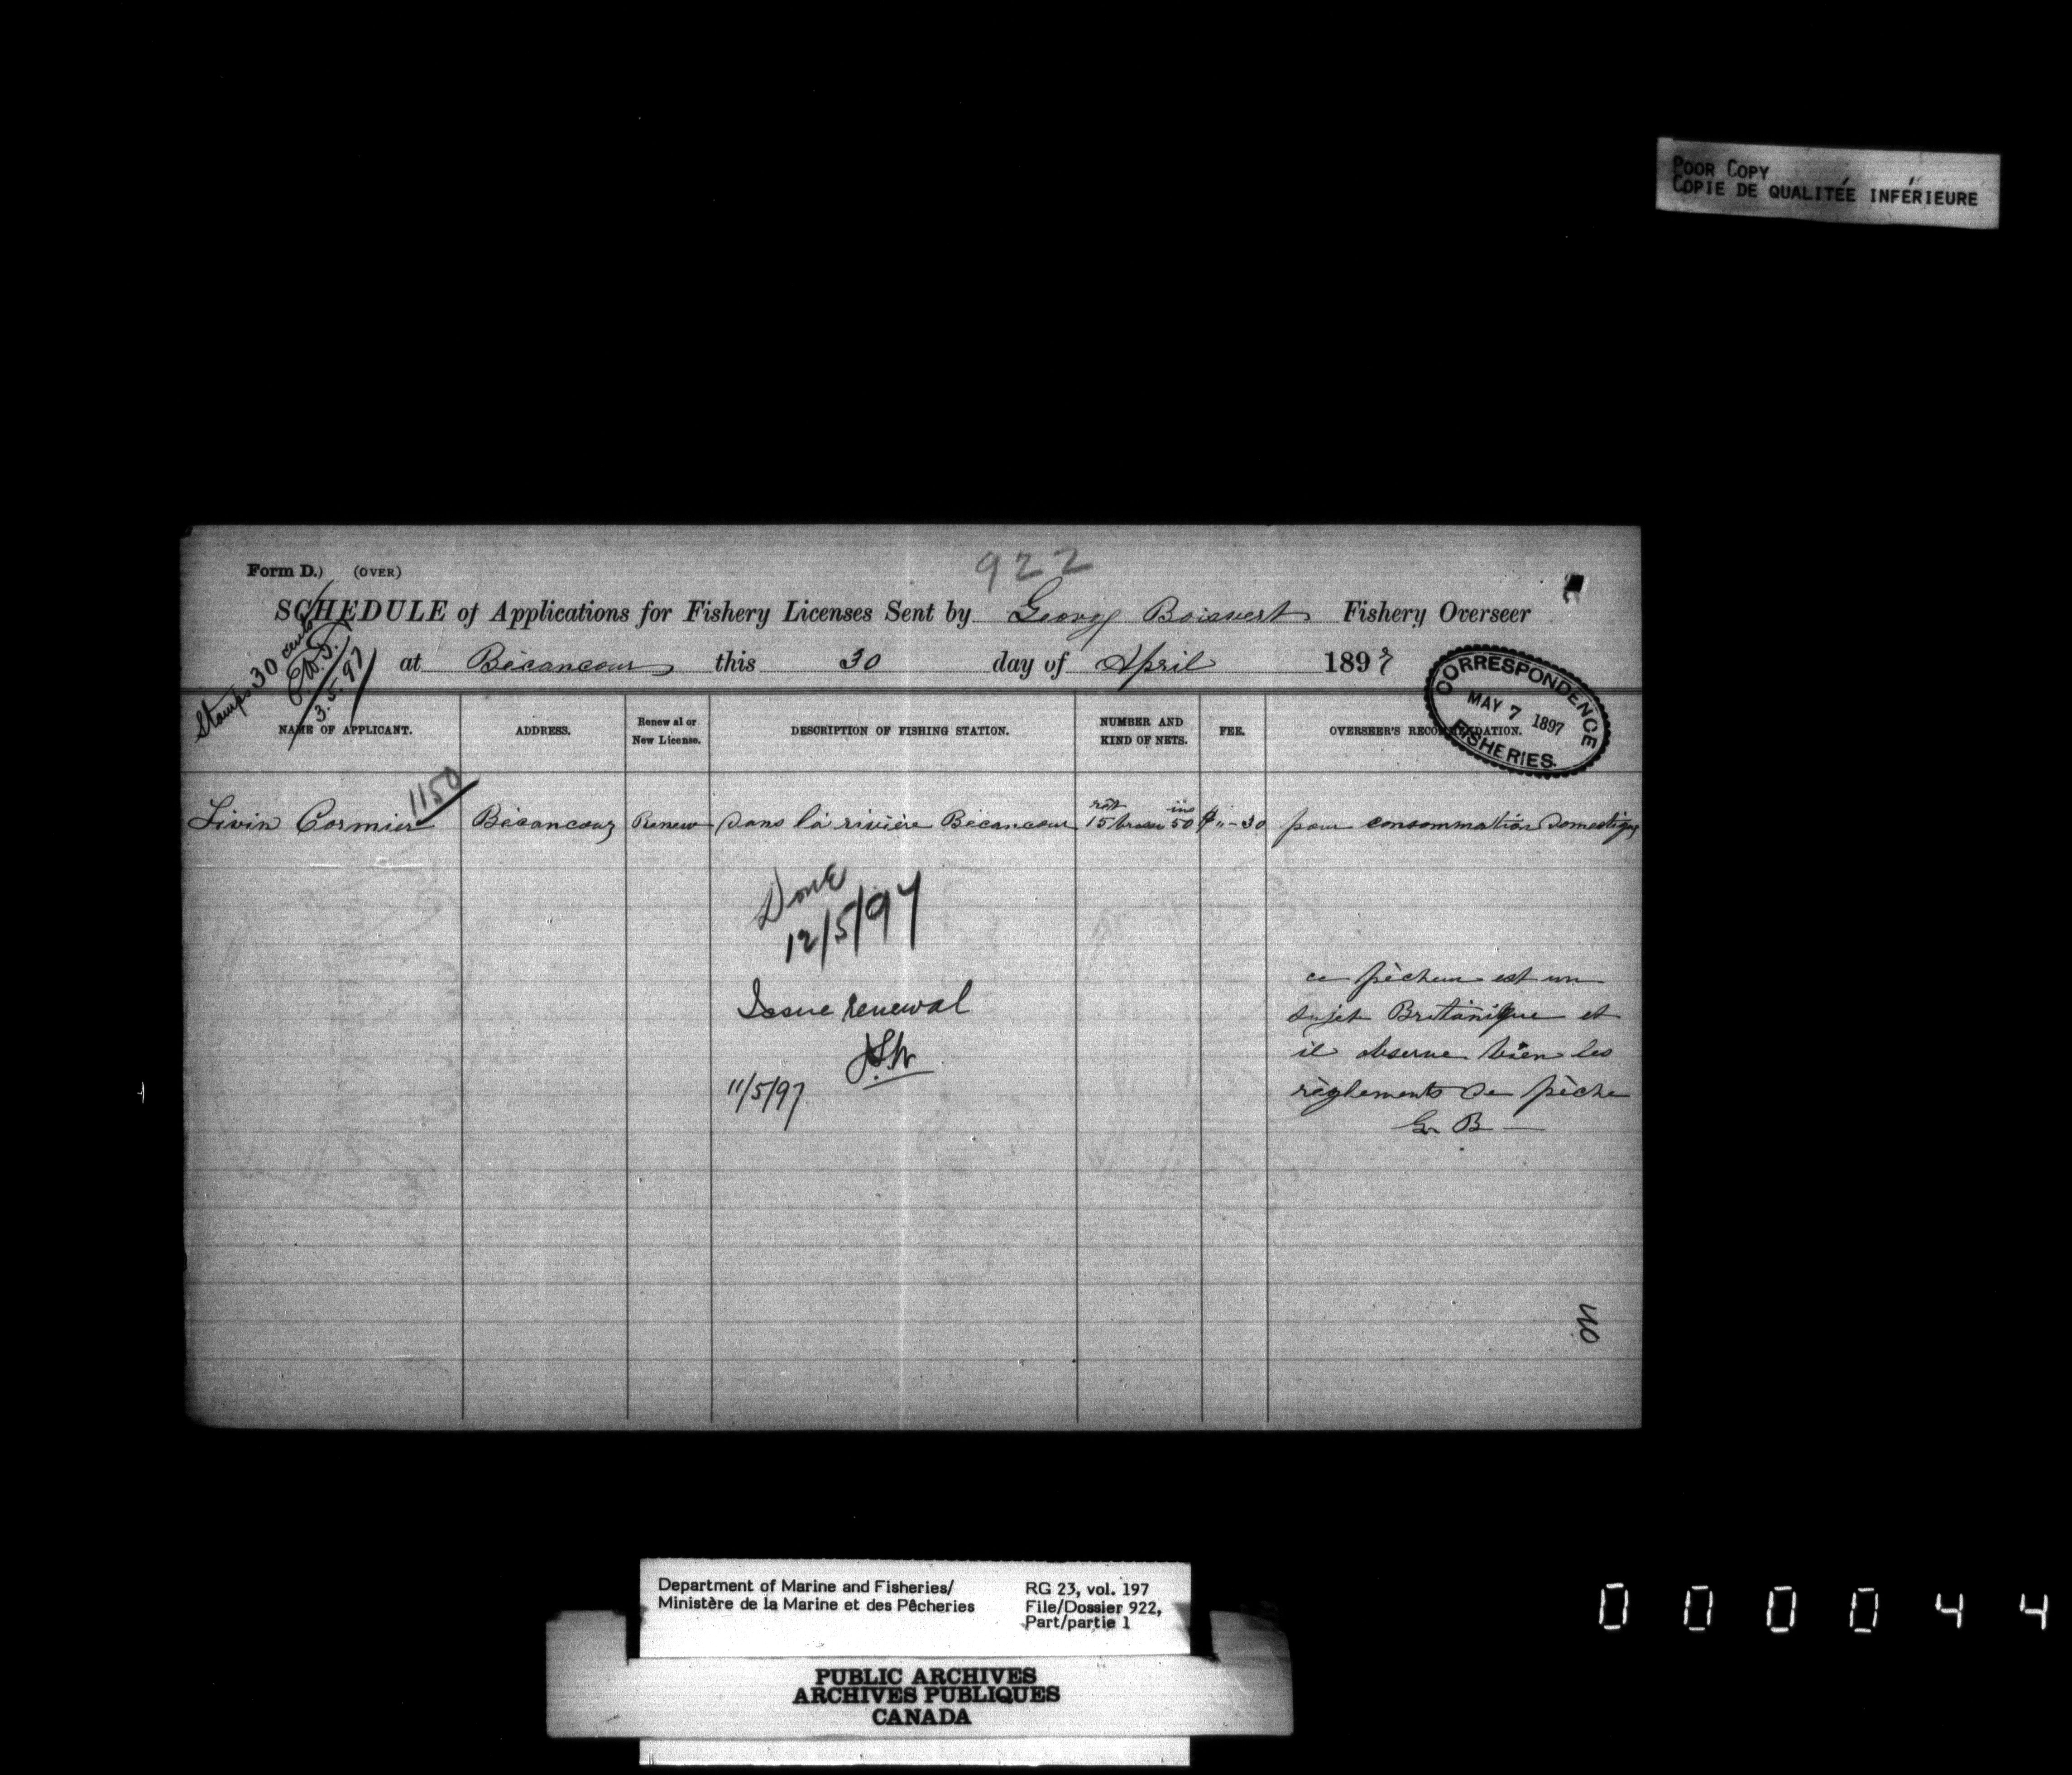 POOR COPY
COPIE DE QUALITÉE INFÉRIEURE
922
Form D.) (OVER)
SCHEDULE of Applications for Fishery Licenses Sent by Georg Boisvert Fishery Overseer
at Bécancour this 30 day of April 1897
Stamps 30 cents
3.5.97
CORRESPONDENCE
MAY 7 1897
FISHERIES.
NAME OF APPLICANT. ADDRESS. Renewal or New License. DESCRIPTION OF FISHING STATION. NUMBER AND KIND OF NETS. FEE. OVERSEER'S RECOMMENDATION.
1150
Livin Cormier Bécancour Renew Dans la rivière Bécancour 15 brasse 50 $"-30 pour consommation Domestique
Done
12/5/97
Issue renewal
11/5/97
ce pècheur est un
sujet Britanique et
il observe bien les
règlements de pèche
G. B —
40
Department of Marine and Fisheries/
Ministère de la Marine et des Pêcheries
RG 23, vol. 197
File/Dossier 922,
Part/partie 1
PUBLIC ARCHIVES
ARCHIVES PUBLIQUES
CANADA
000044